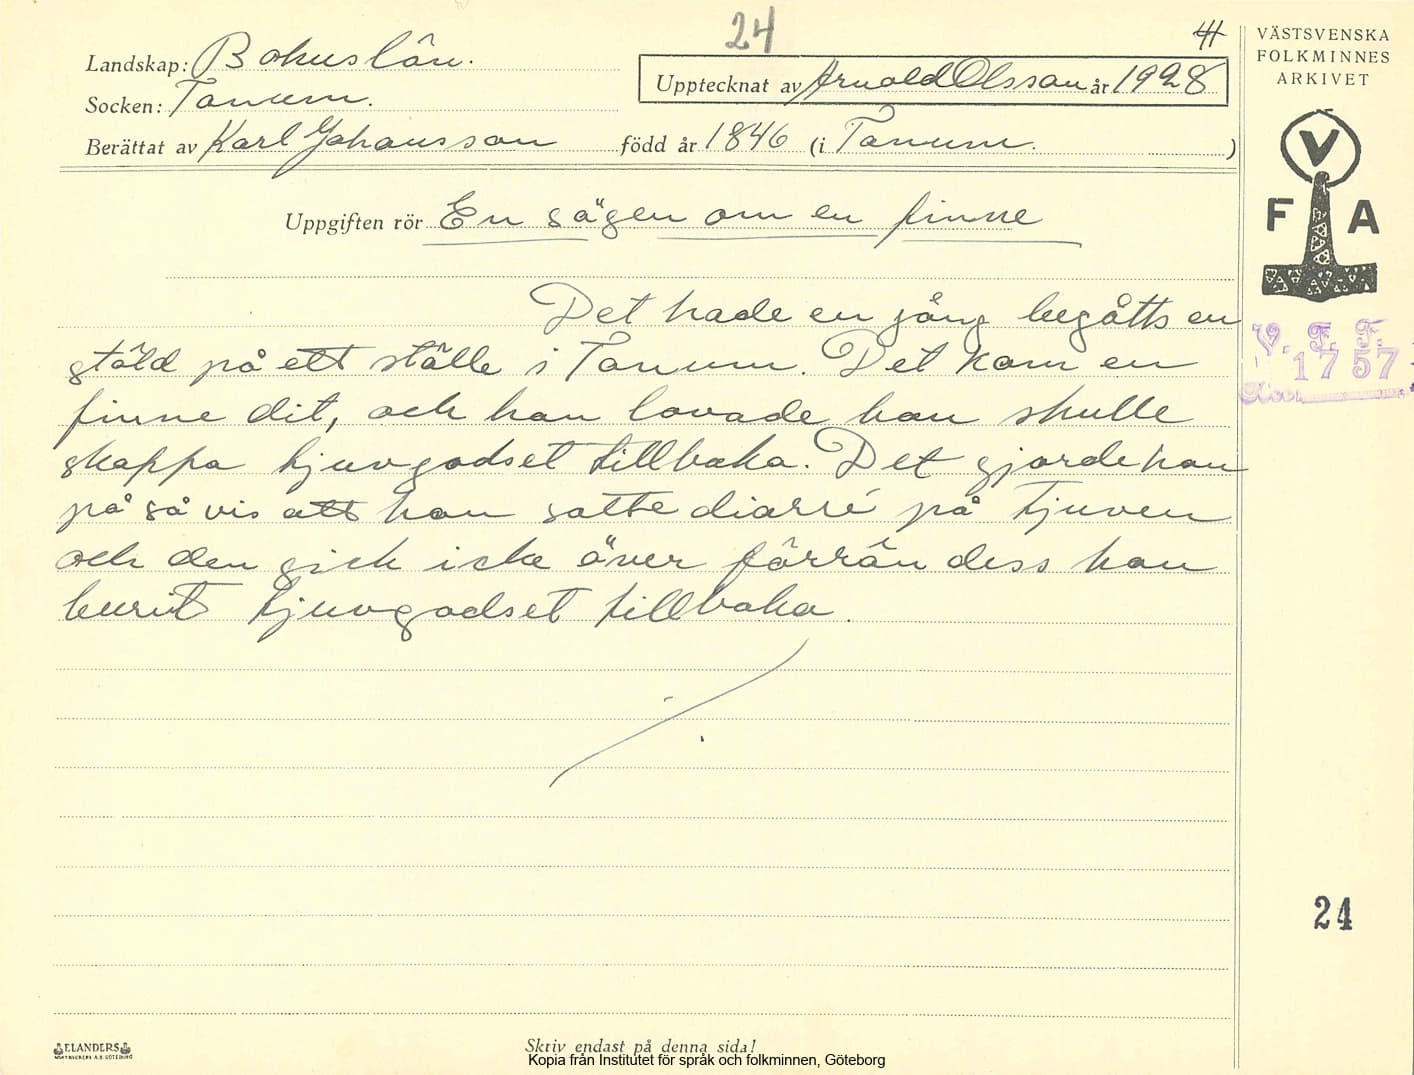 24
H
Landskap: Bohuslän.
Upptecknat av Arnold Olsson år 1928
Socken: Tanum.
Berättat av Karl Johansson född år 1846 (i Tanum. )
Uppgiften rör En sägen om en finne
Det hade en gång begåtts en
stöld på ett ställe i Tanum. Det kom en
finne dit, och han lovade han skulle
skappa tjuvgodset tillbaka. Det gjorde han
på så vis att han satte diarré på tjuven
och den gick icke över förrän dess han
burit tjuvgodset tillbaka.
VÄSTSVENSKA
FOLKMINNES
ARKIVET
V
F A
V. F. F.
1757
24
ELANDERS
Skriv endast på denna sida!
Kopia från Institutet för språk och folkminnen, Göteborg